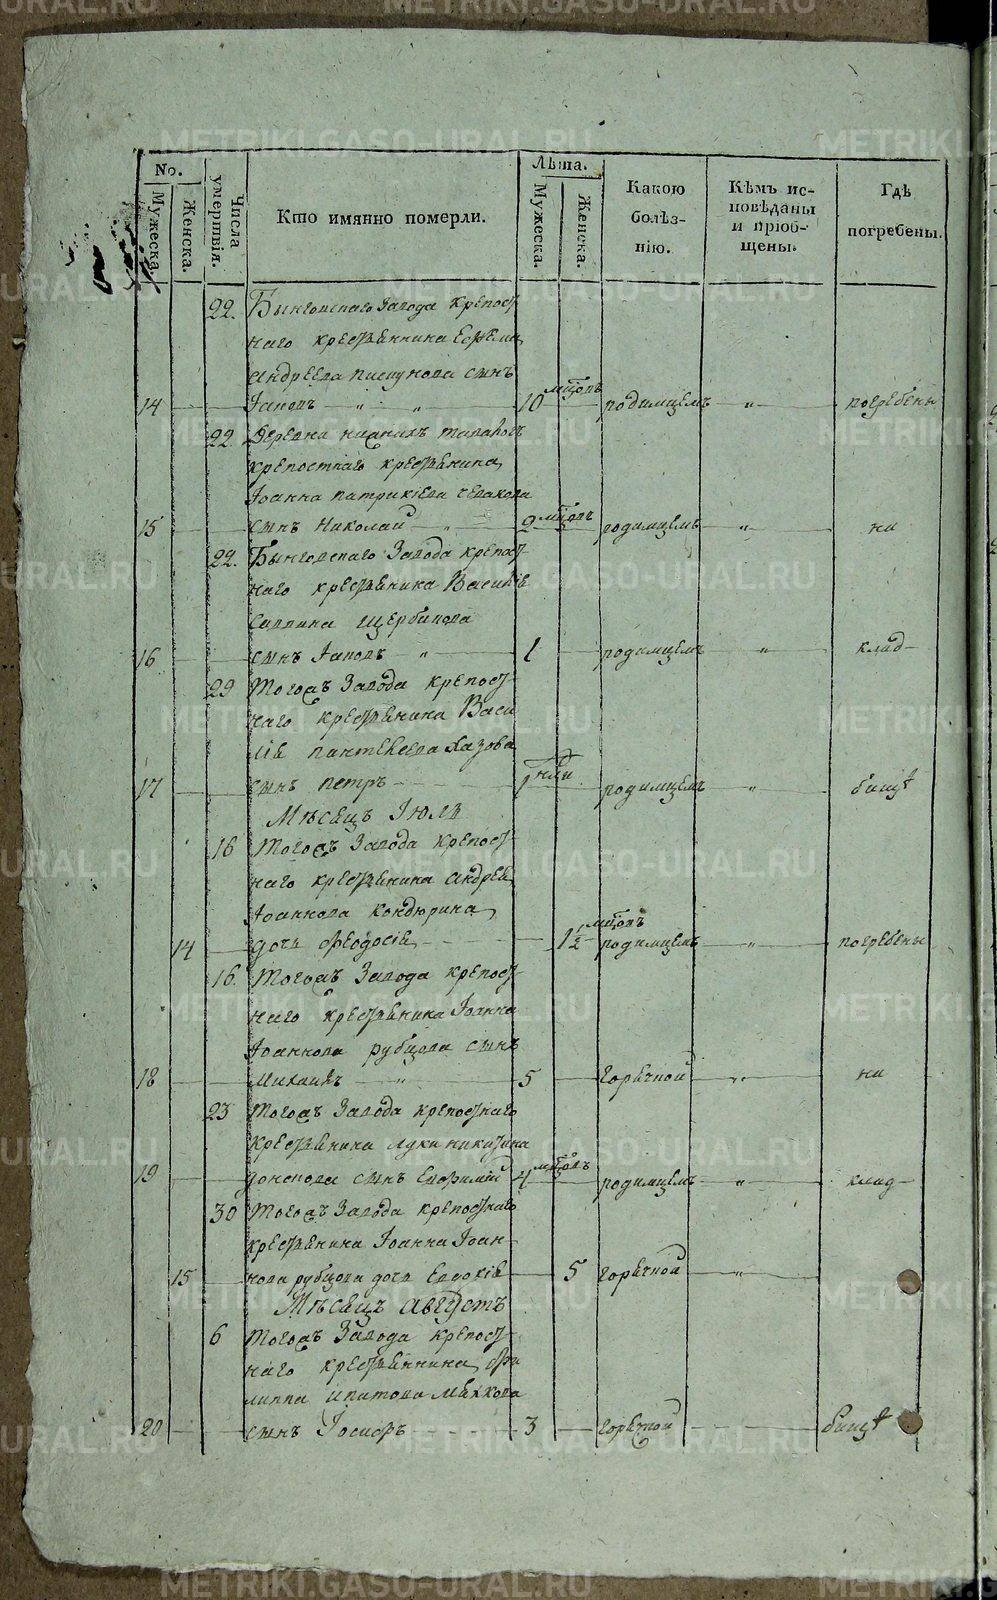 METRIKI.GASO-URAL.RU
No.
Мужеска.
Женска.
Числа умертвія.
Кто имянно померли.
Лѣта.
Мужеска.
Женска.
Какою болѣз-
нію.
Кѣмъ ис-
повѣданы
и пріоб-
щены.
Гдѣ
погребены.
22. Бынговскаго Завода крепост
наго крестьянина Ефрема
Андреева сынъ
14 Іаковъ 10 мцовъ родимцемъ " погребены
22 Деревни нижнихъ
крепостнаго крестьянина
Іоанна патрикіева
15 сынъ Николай " 2 мцовъ родимцемъ " на
22. Бынговскаго Завода крепост
наго крестьянина Василія
Саввина Щербакова
16 сынъ Іаковъ " 1 родимцемъ " клад-
29 Тогожъ Завода крепост-
наго крестьянина Васи
лія пантелеева
17 сынъ петръ 1 нди родимцемъ " бищѣ
Мѣсяцъ Іюль
16 Тогожъ Завода крепост-
наго крестьянина Андрея
Іоаннова Кондюрина
14 дочь Феодосія 1½ мцовъ родимцемъ " погребены
16. Тогожъ Завода крепост-
наго крестьянина Іоанна
Іоаннова рубцова сынъ
18 Михаилъ " 5 горячкой " на
23 Тогожъ Завода крепостнаго
крестьянина луки никитина
19 сынъ Евфимій 4 мцовъ родимцемъ " клад-
30 Тогожъ Завода крепостнаго
крестьянина Іоанна Іоан-
15 нова рубцова дочь Евдокія 5 горячкой "
Мѣсяцъ Августъ
6 Тогожъ Завода крепост-
наго крестьянина фи
липпа ипатова
20 сынъ Іосифъ 3 горячкой бищѣ